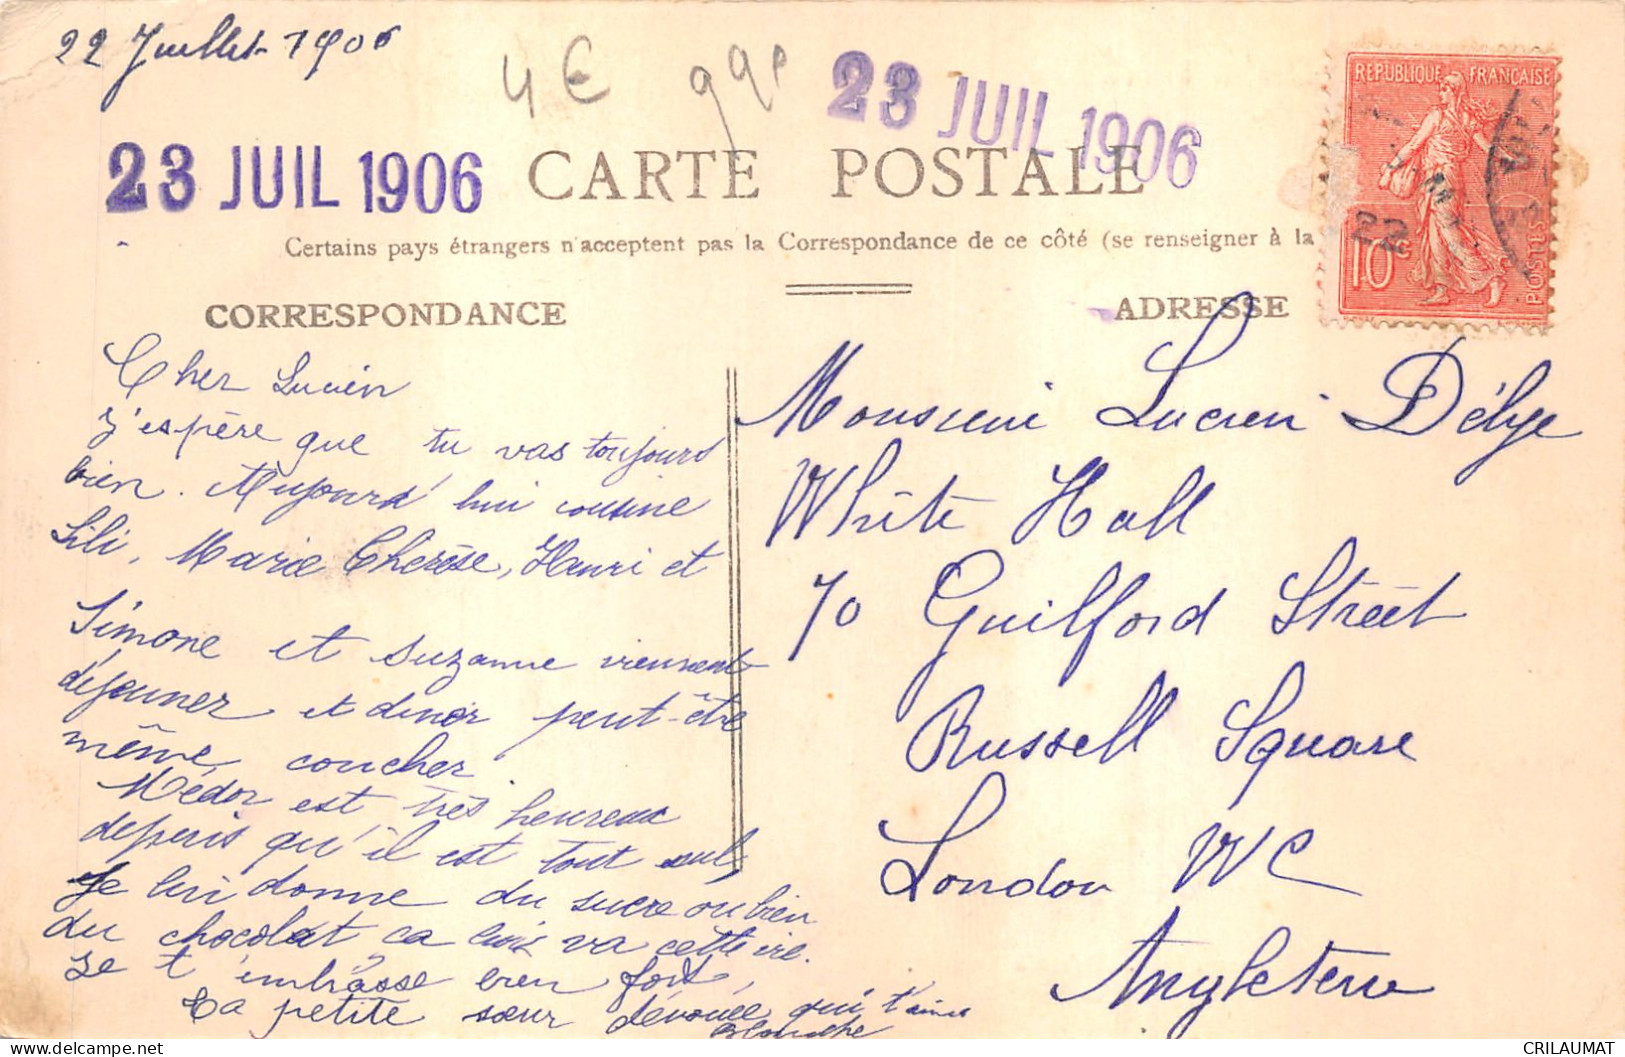 22 Juillet 1906
4€ 99c
23 JUIL 1906
23 JUIL 1906
CARTE POSTALE
REPUBLIQUE FRANÇAISE
10c
POSTES
22
Certains pays étrangers n'acceptent pas la Correspondance de ce côté (se renseigner à la
CORRESPONDANCE
Cher Lucien
J'espère que tu vas toujours
bien. Aujourd'hui cousine
Lili, Marie Thérèse, Henri et
Simone et Suzanne viennent
déjeuner et dinor peut-être
même coucher
Médor est très heureux
depuis qu'il est tout seul,
Je lui donne du sucre ou bien
du chocolat, ça lui va cette vie.
Je t'embrasse bien fort,
Ta petite sœur dévouée qui t'aime
Blanche
ADRESSE
Monsieur Lucien Délye
White Hall
70 Guilford Street
Russell Square
London WC
Angleterre
CRILAUMAT